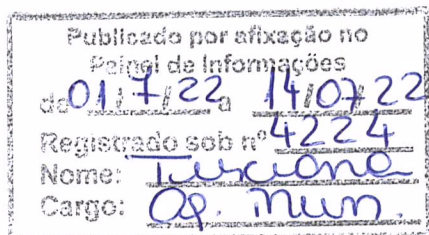 Publicado por afixação no
Painel de Informações
de 01/7/22 a 14/07/22
Registrado sob nº 4224
Nome:
Cargo: Op. Mun.